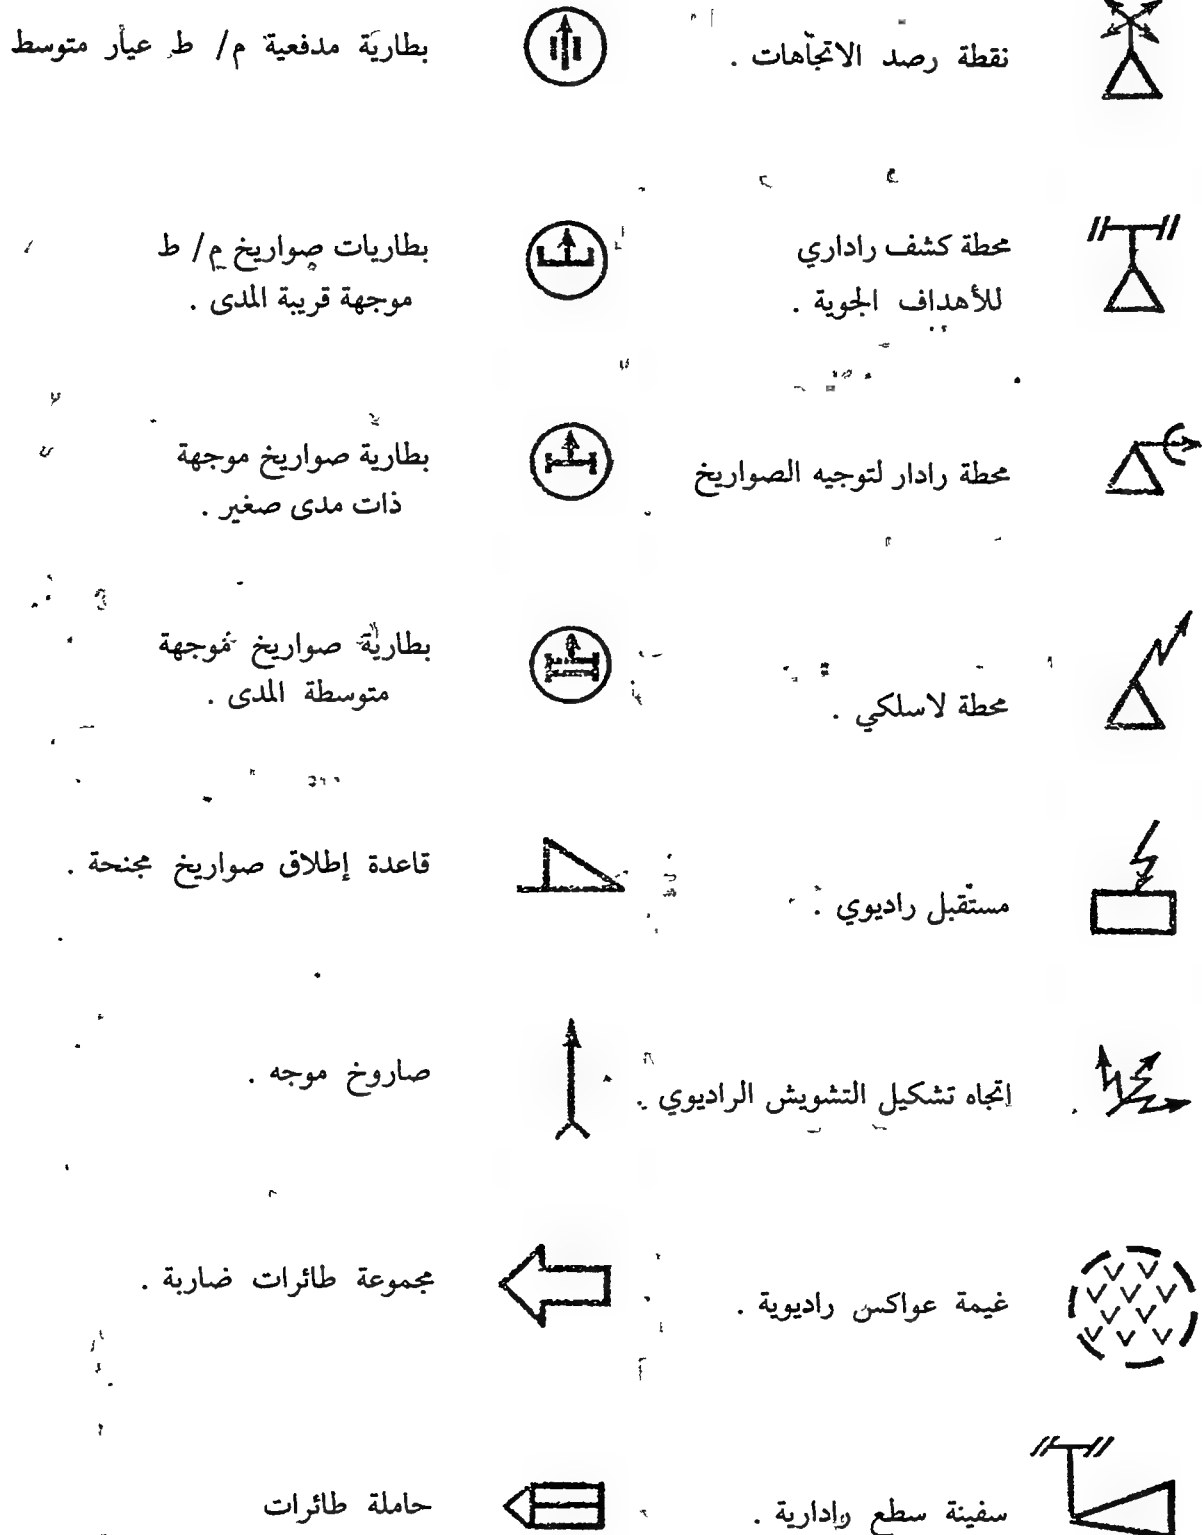 نقطة رصد الاتجاهات .
محطة كشف راداري
للأهداف الجوية .
محطة رادار لتوجيه الصواريخ
محطة لاسلكي .
مستقبل راديوي .
اتجاه تشكيل التشويش الراديوي .
غيمة عواكس راديوية .
سفينة سطع رادارية .
بطارية مدفعية م/ ط عيار متوسط
بطاريات صواريخ م/ ط
موجهة قريبة المدى .
بطارية صواريخ موجهة
ذات مدى صغير .
بطارية صواريخ موجهة
متوسطة المدى .
قاعدة إطلاق صواريخ مجنحة .
صاروخ موجه .
مجموعة طائرات ضاربة .
حاملة طائرات